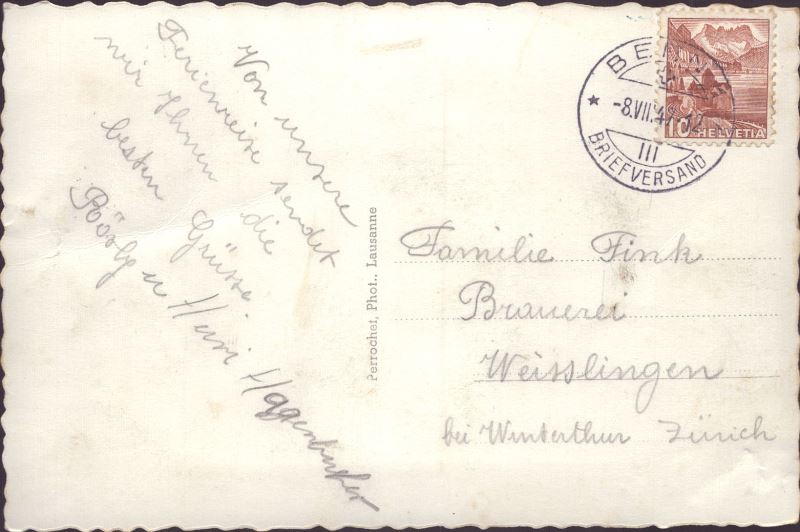 Von unsere
Ferienreise sendet
wir Ihnen die
besten Grüsse
Rösly u Heiri Haggenbucher
Perrochet, Phot., Lausanne
BERN
-8.VII.41-12
III
BRIEFVERSAND
10 HELVETIA
Familie Fink
Brauerei
Weisslingen
bei Winterthur Zürich